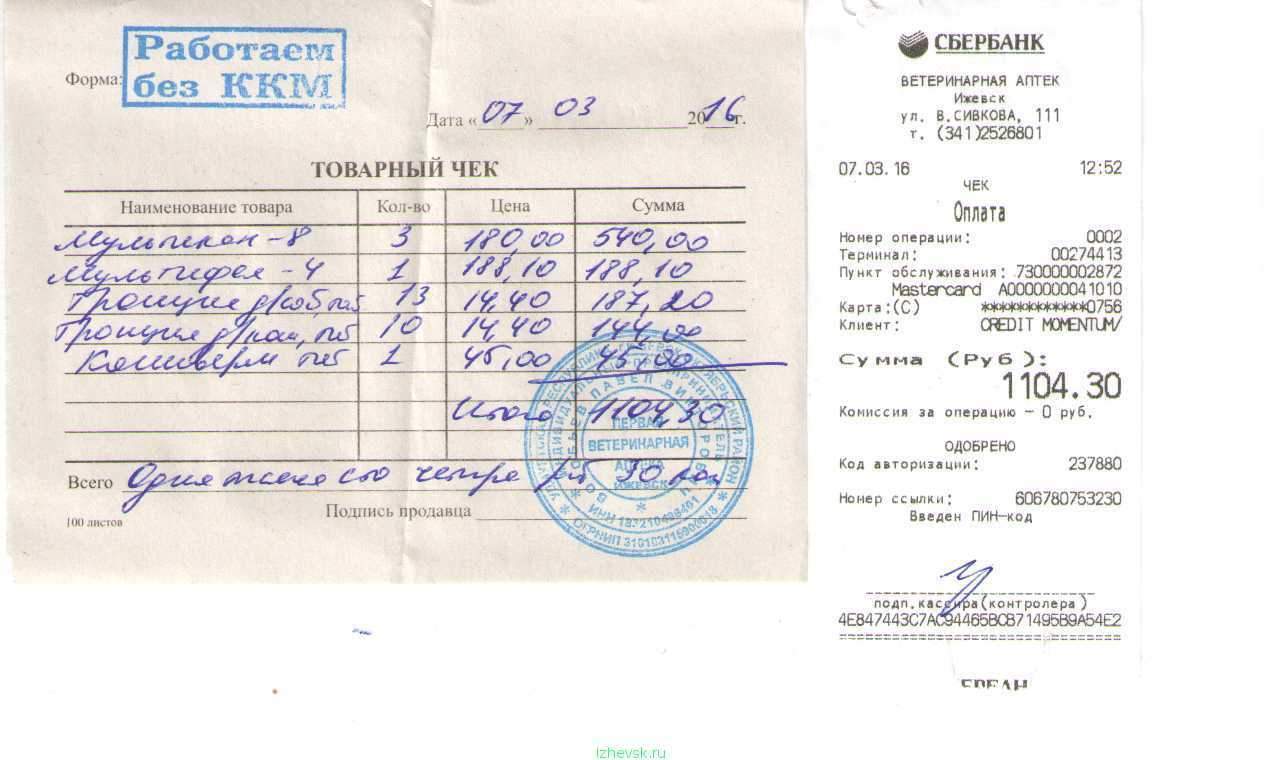 Работаем
без ККМ
Форма:
Дата «07» 03 2016г.
ТОВАРНЫЙ ЧЕК
Наименование товара Кол-во Цена Сумма
Мультикан-8 3 180,00 540,00
Мультифел-4 1 188,10 188,10
д/соб, таб 13 14,40 187,20
10 14,40 144,00
1 45,00 45,00
Итого 1104,30
Всего Одна тысяча сто четыре руб 30 коп
100 листов
Подпись продавца
ПЕРВАЯ
ВЕТЕРИНАРНАЯ
АПТЕКА
ИЖЕВСК
СБЕРБАНК
ВЕТЕРИНАРНАЯ АПТЕК
Ижевск
ул. В.СИВКОВА, 111
т. (341)2526801
07.03.16 12:52
ЧЕК
Оплата
Номер операции: 0002
Терминал: 00274413
Пункт обслуживания: 730000002872
Mastercard A0000000041010
Карта:(C) ************0756
Клиент: CREDIT MOMENTUM/
Сумма (Руб):
1104.30
Комиссия за операцию – 0 руб.
ОДОБРЕНО
Код авторизации: 237880
Номер ссылки: 606780753230
Введен ПИН-код
подп.кассира(контролера)
4E847443C7AC94465BCB71495B9A54E2
==================================
izhevsk.ru